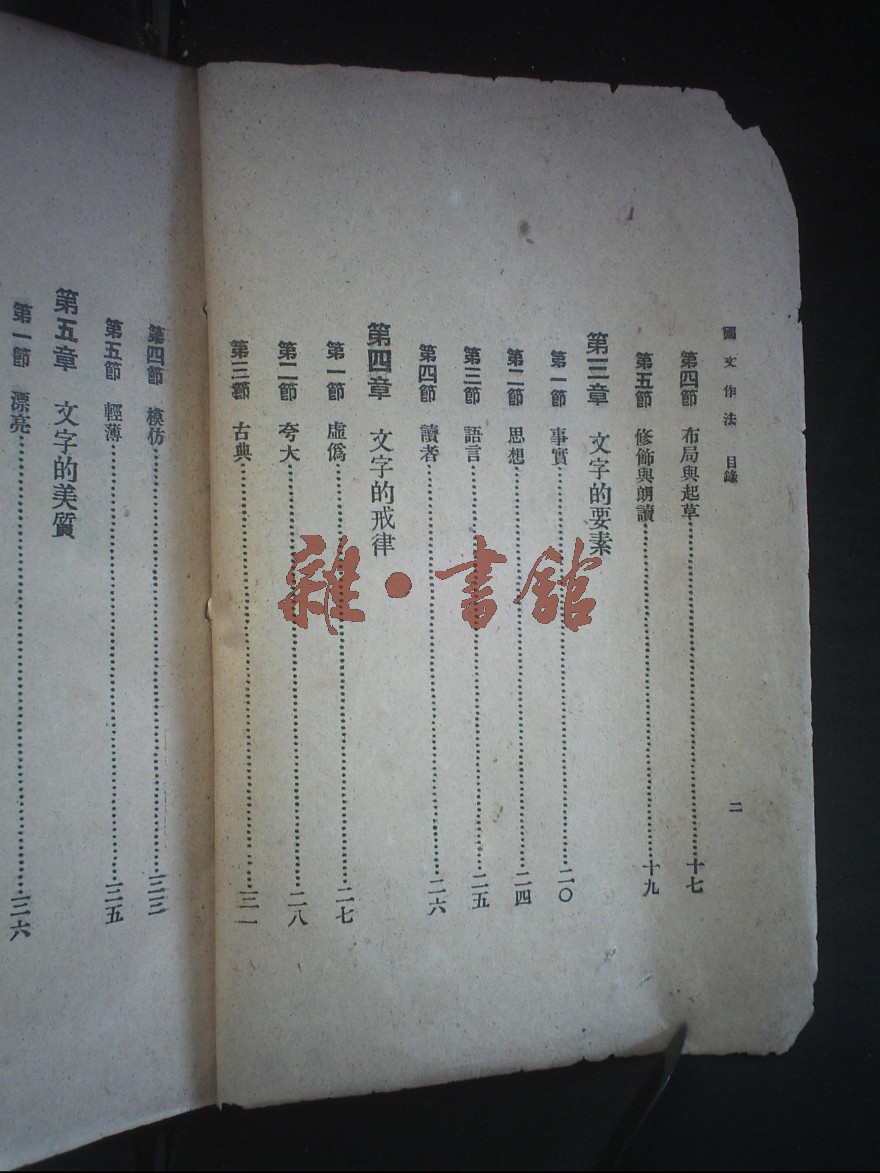 國文作法 目錄 二
第四節 布局與起草 十七
第五節 修飾與朗讀 十九
第三章 文字的要素
第一節 事實 二〇
第二節 思想 二四
第三節 語言 二五
第四節 讀者 二六
第四章 文字的戒律
第一節 虛僞 二七
第二節 夸大 二八
第三節 古典 三一
第四節 模仿 三三
第五節 輕薄 三五
第五章 文字的美質
第一節 漂亮 三六
雜·書館